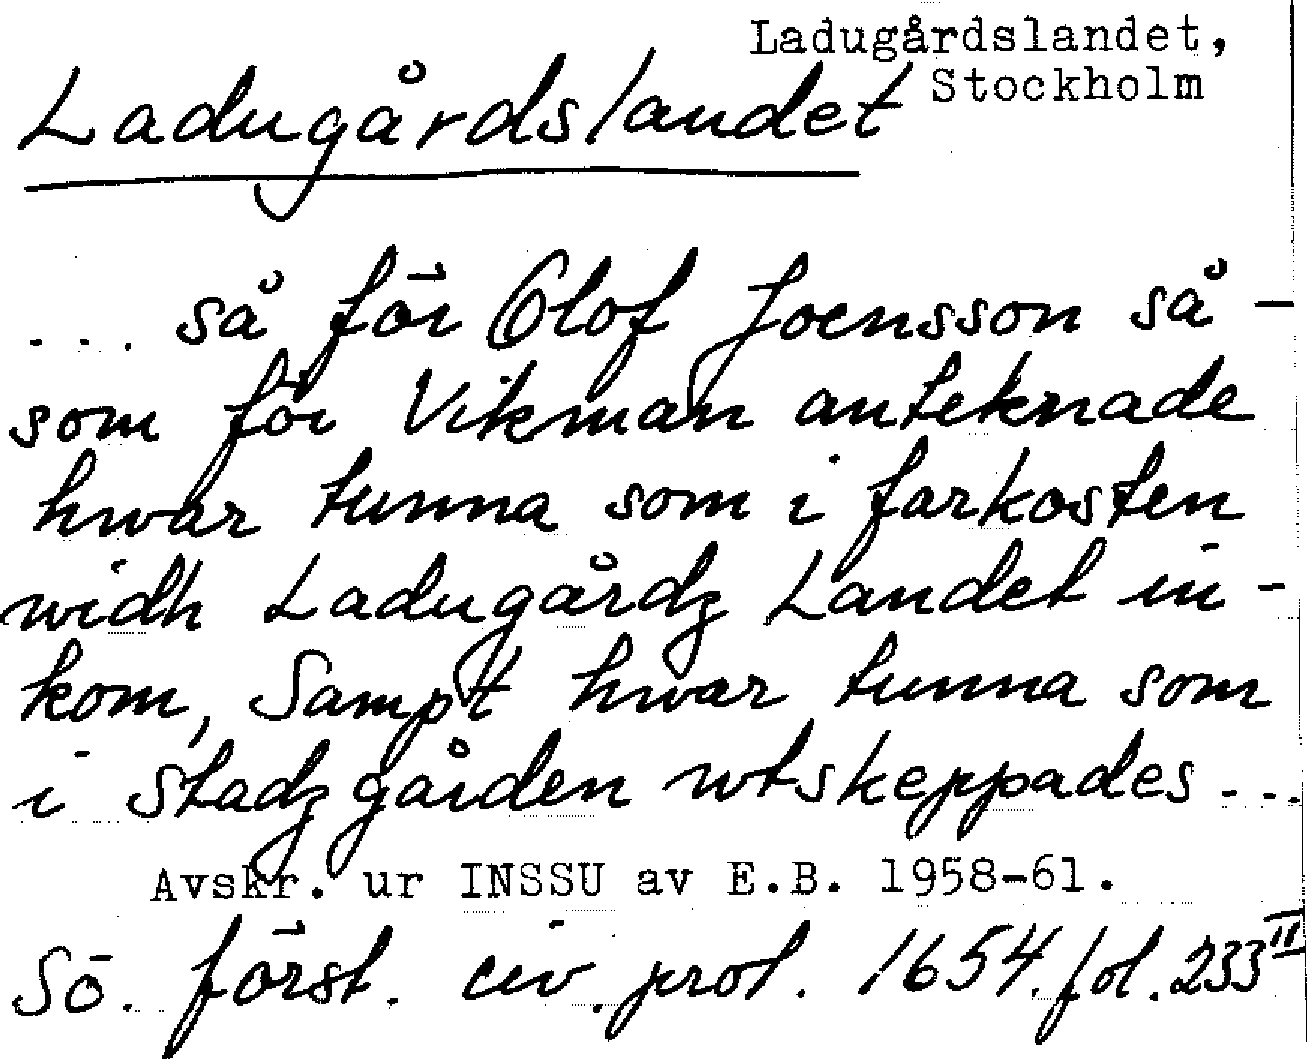 Ladugårdslandet,
Stockholm
Ladugårdslandet
... så för Olof Joensson så-
som för Vikman anteknade
hwar tunna som i farkosten
widh Ladugårdz Landet in-
kom, Sampt hwar tunna som
i Stadzgården wtskeppades ...
Avskr. ur INSSU av E.B. 1958-61.
Sö. först. civ. prot. 1654. fol. 233 II